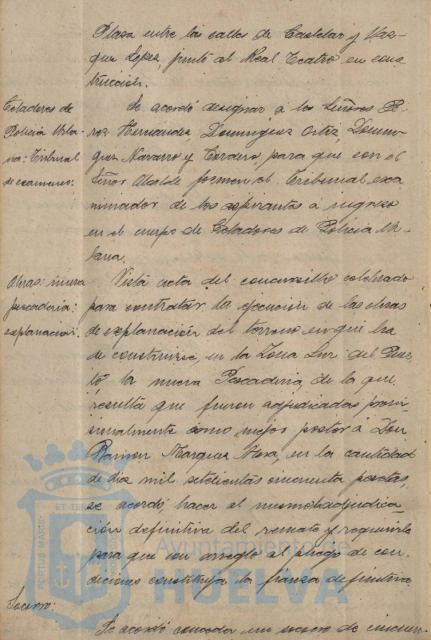 Plaza entre las calles de Castelar y Vaz-
quez Lopez, junto al Real Teatro en cons-
trucción.
Celadores de
Policía Urba-
na: Tribunal
de examenes.
Se acordó designar a los Señores Pe-
rez Hernandez, Dominguez Ortiz, Domin-
guez Navarro y Cordero, para que con el
Señor Alcalde formen el Tribunal exa-
minador de los aspirantes a ingreso
en el cuerpo de Celadores de Policía Ur-
bana.
Obras: nueva
pescadería:
explanación.
Vista acta del concursillo celebrado
para contratar la ejecución de las obras
de explanación del terreno en que ha
de construirse, en la Zona Sur del Puer-
to la nueva Pescaderia, de la que
resulta que fueron adjudicadas provi-
sionalmente como mejor postor a Don
Ramon Marquez, en la cantidad
de diez mil setecientas cincuenta pesetas,
se acordó, hacer el mismo adjudica-
ción definitiva del remate y requerirle
para que con arreglo al pliego de con-
diciones constituya la fianza definitiva.
Socorro:
Se acordó conceder un socorro de cincuen-
PORTUS MARIS
ET TERRAE
Ayuntamiento de
HUELVA